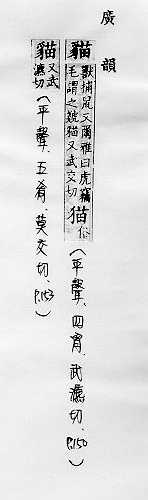 廣韻
貓 獸捕鼠又爾雅曰虎竊毛謂之虦貓又武交切 猫 俗 (平聲、四宵、武瀌切、P.150)
貓 又武瀌切 (平聲、五肴、莫交切、P.153)